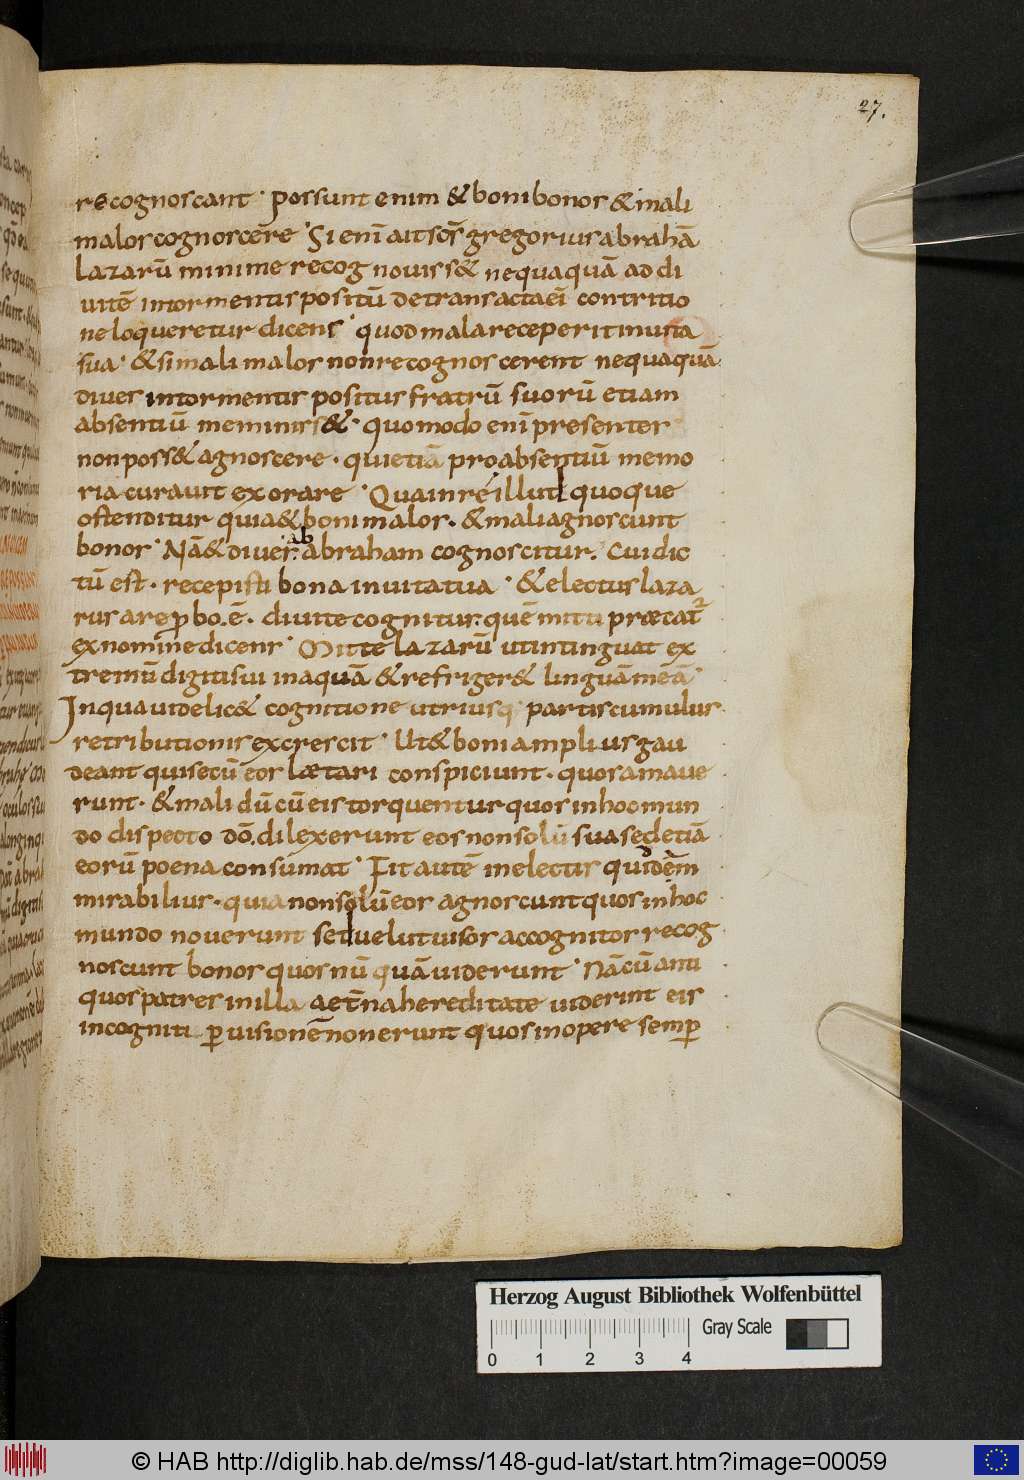 27.
recognoscant· possunt enim & boni bonos & mali
malos cognoscēre· Si enī ait scs̄ gregorius abrahā
lazarū minime recognouiss& nequaquā ad di
uitē in tormentis positū de transacta eī contritio
ne loqueretur dicens· quod mala receperit in uita
sua· & si mali malos non recognoscerent nequaquā
diues in tormentis positus fratrū suorū etiam
absentiū meminiss&· quomodo enī presentes
non poss& agnoscere· qui etiā pro absentiū memo
ria curauit exorare· Qua in re illud quoque
ostenditur quia & boni malos· & mali agnoscunt
bonos· Nā & diues ab abraham cognoscitur· Cui dic
tū est· recepisti bona in uita tua· & electus laza
rus a rep̱bo.ē. diuite cognitus· quē mitti præcat᷑
ex nomine dicens· Mitte lazarū ut intinguat ex
tremū digiti sui in aquā & refriger& linguā meā·
In qua uidelic& cognitione utriusq; partis cumulus
retributionis excrescit· Ut & boni amplius gau
deant qui secū eos lætari conspiciunt· quos amaue
runt· & mali dū cū eis torquentur quos in hoc mun
do dispecto dō. dilexerunt eos non solū sua sed etiā
eorū poena consumat· Fit autē in electis quiddam
mirabilius· quia non solū eos agnoscunt quos in hoc
mundo nouerunt sed uelut uisos ac cognitos recog
noscunt bonos quos nūquā uiderunt· Nā cū anti
quos patres in illa aet̄na hereditate uiderint eis
incogniti p̱ uisionē non erunt quos in opere semp̱
Herzog August Bibliothek Wolfenbüttel
Gray Scale
0 1 2 3 4
© HAB http://diglib.hab.de/mss/148-gud-lat/start.htm?image=00059